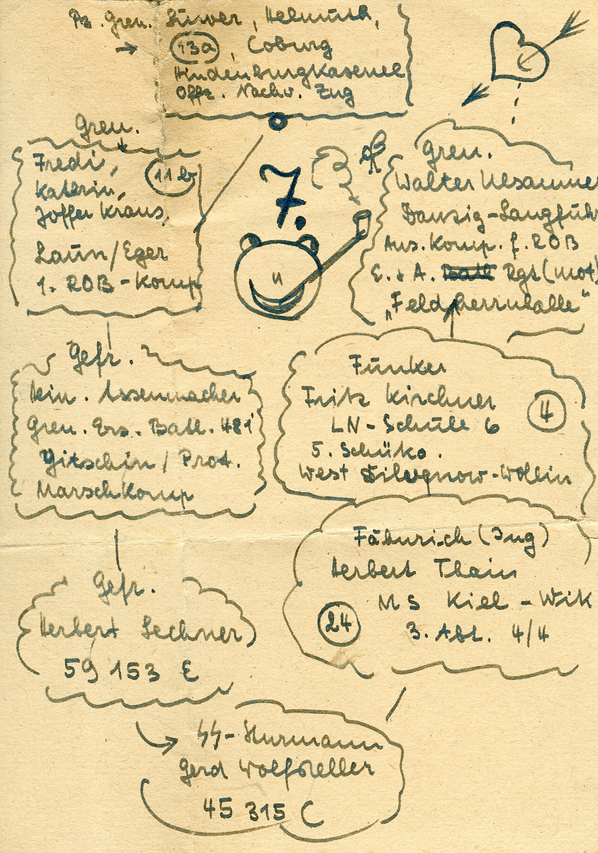 Pz. Gren. Süwer, Helmuth,
13a, Coburg
Hindenburgkaserne
Offz. Nachw. Zug
Gren.
Fredi,
11b
Katerin,
Joffer Kraus,
Laun/Eger
1. ROB-Komp
7.
Gren.
Walter
Danzig-Langfuhr
Aus. Komp. f. ROB
E. + A. Batl Rgt (mot)
„Feldherrnhalle"
Gefr.
Hein. Assenmacher
Gren. Ers. Batl. 481
Gitschin / Prot.
Marschkomp
Funker
Fritz Kirchner
4
LN-Schule 6
5. Schüko.
West Dievenow-Wollin
Fähnrich (Ing)
Herbert Thein
MS Kiel-Wik
24
3. Abt. 4/4
Gefr.
Herbert Lechner
59 153 E
SS-Sturmann
Gerd Wolfsteller
45 315 C